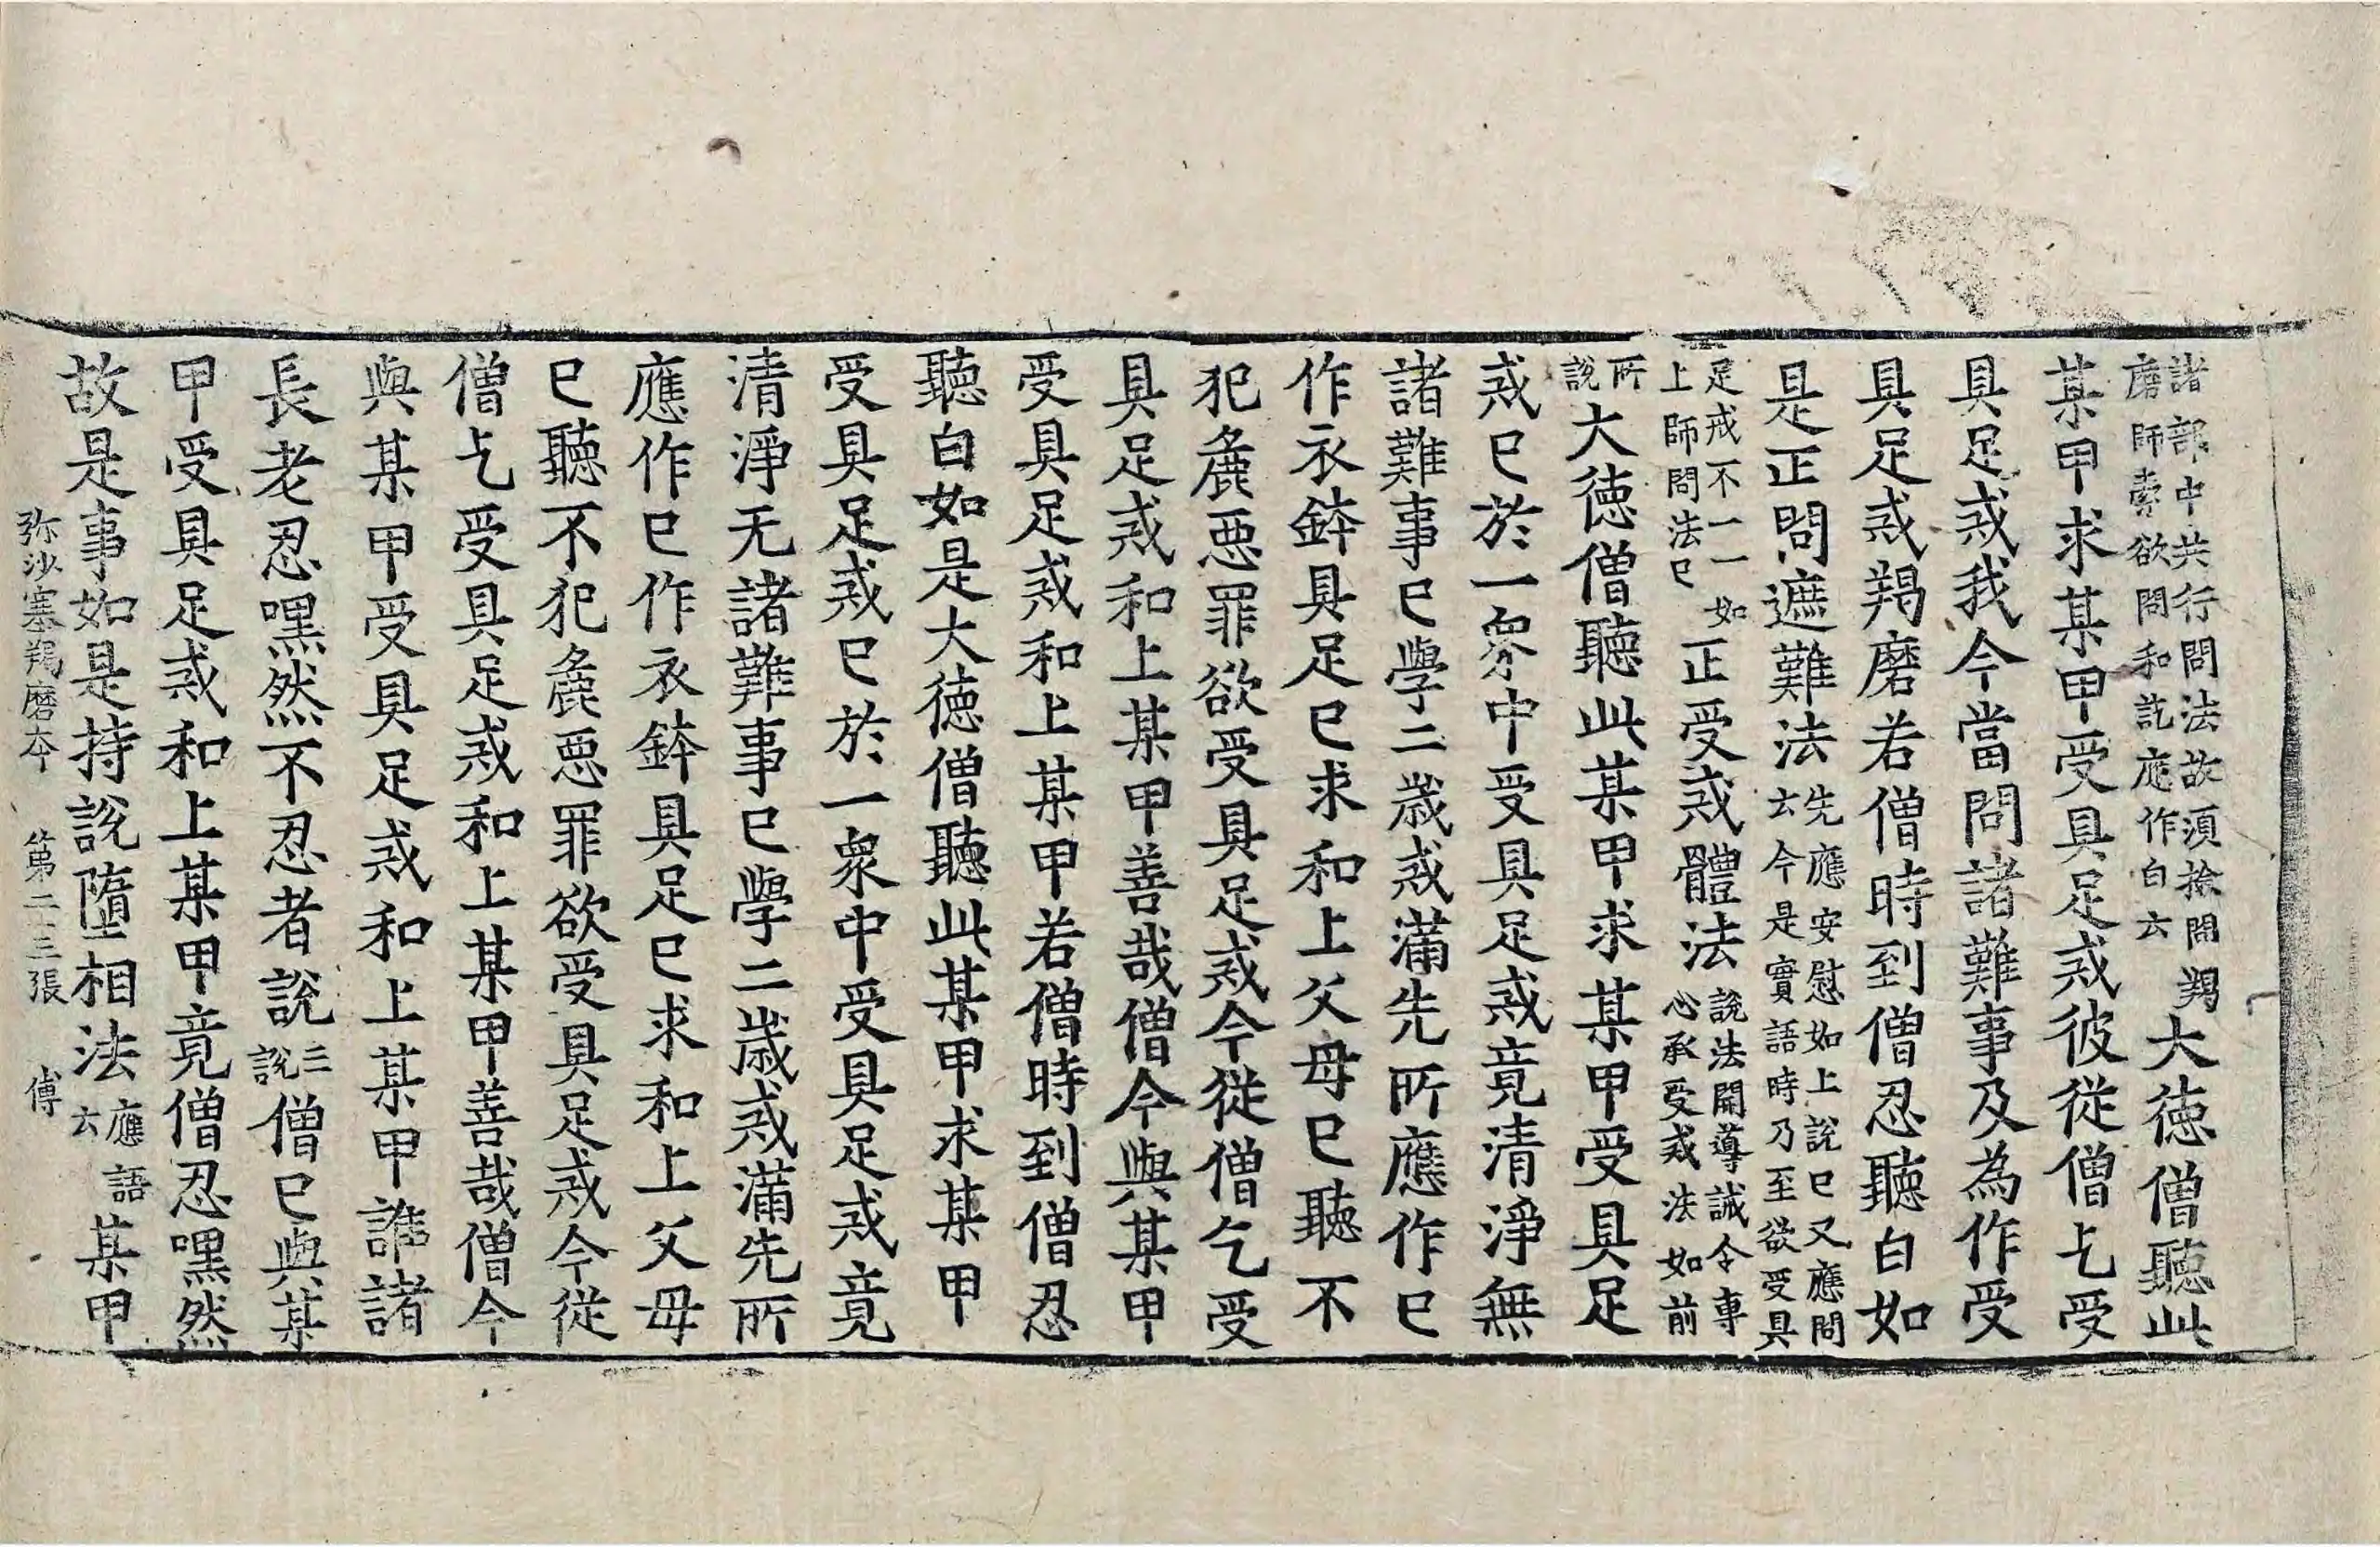 諸部中共行問法故須撿問羯
磨師索欲問和訖應作白云
大德僧聽此
某甲求某甲受具足戒彼從僧乞受
具足戒我今當問諸難事及為作受
具足戒羯磨若僧時到僧忍聽白如
是正問遮難法
先應安慰如上說已又應問
云今是實語時乃至欲受具
足戒不一一如
上師問法已
正受戒體法
說法開導誡令專
心承受戒法如前
所
說
大德僧聽此某甲求某甲受具足
戒已於一眾中受具足戒竟清淨無
諸難事已學二歲戒滿先所應作已
作衣鉢具足已求和上父母已聽不
犯麁惡罪欲受具足戒今從僧乞受
具足戒和上某甲善哉僧今與某甲
受具足戒和上某甲若僧時到僧忍
聽白如是大德僧聽此某甲求某甲
受具足戒已於一眾中受具足戒竟
清淨无諸難事已學二歲戒滿先所
應作已作衣鉢具足已求和上父母
已聽不犯麁惡罪欲受具足戒今從
僧乞受具足戒和上某甲善哉僧今
與某甲受具足戒和上某甲誰諸
長老忍嘿然不忍者說
三
說
僧已與某
甲受具足戒和上某甲竟僧忍嘿然
故是事如是持說墮相法
應語
云
某甲
弥沙塞羯磨本 第二三張 傅